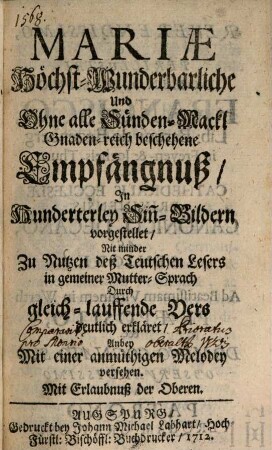 1568.
MARIÆ
Höchst-Wunderbarliche
Und
Ohne alle Sünden-Mackl
Gnaden-reich beschehene
Empfängnuß/
In
Hunderterley Siñ-Bildern
vorgestellet/
Nit minder
Zu Nutzen deß Teutschen Lesers
in gemeiner Mutter-Sprach
Durch
gleich-lauffende Vers
deutlich erkläret/
Anbey
Mit einer anmüthigen Melodey
versehen.
Mit Erlaubnuß der Oberen.
AUGSPURG/
Gedruckt bey Johann Michael Labhart/ Hoch-
Fürstl: Bischöffl: Buchdrucker/ 1712.